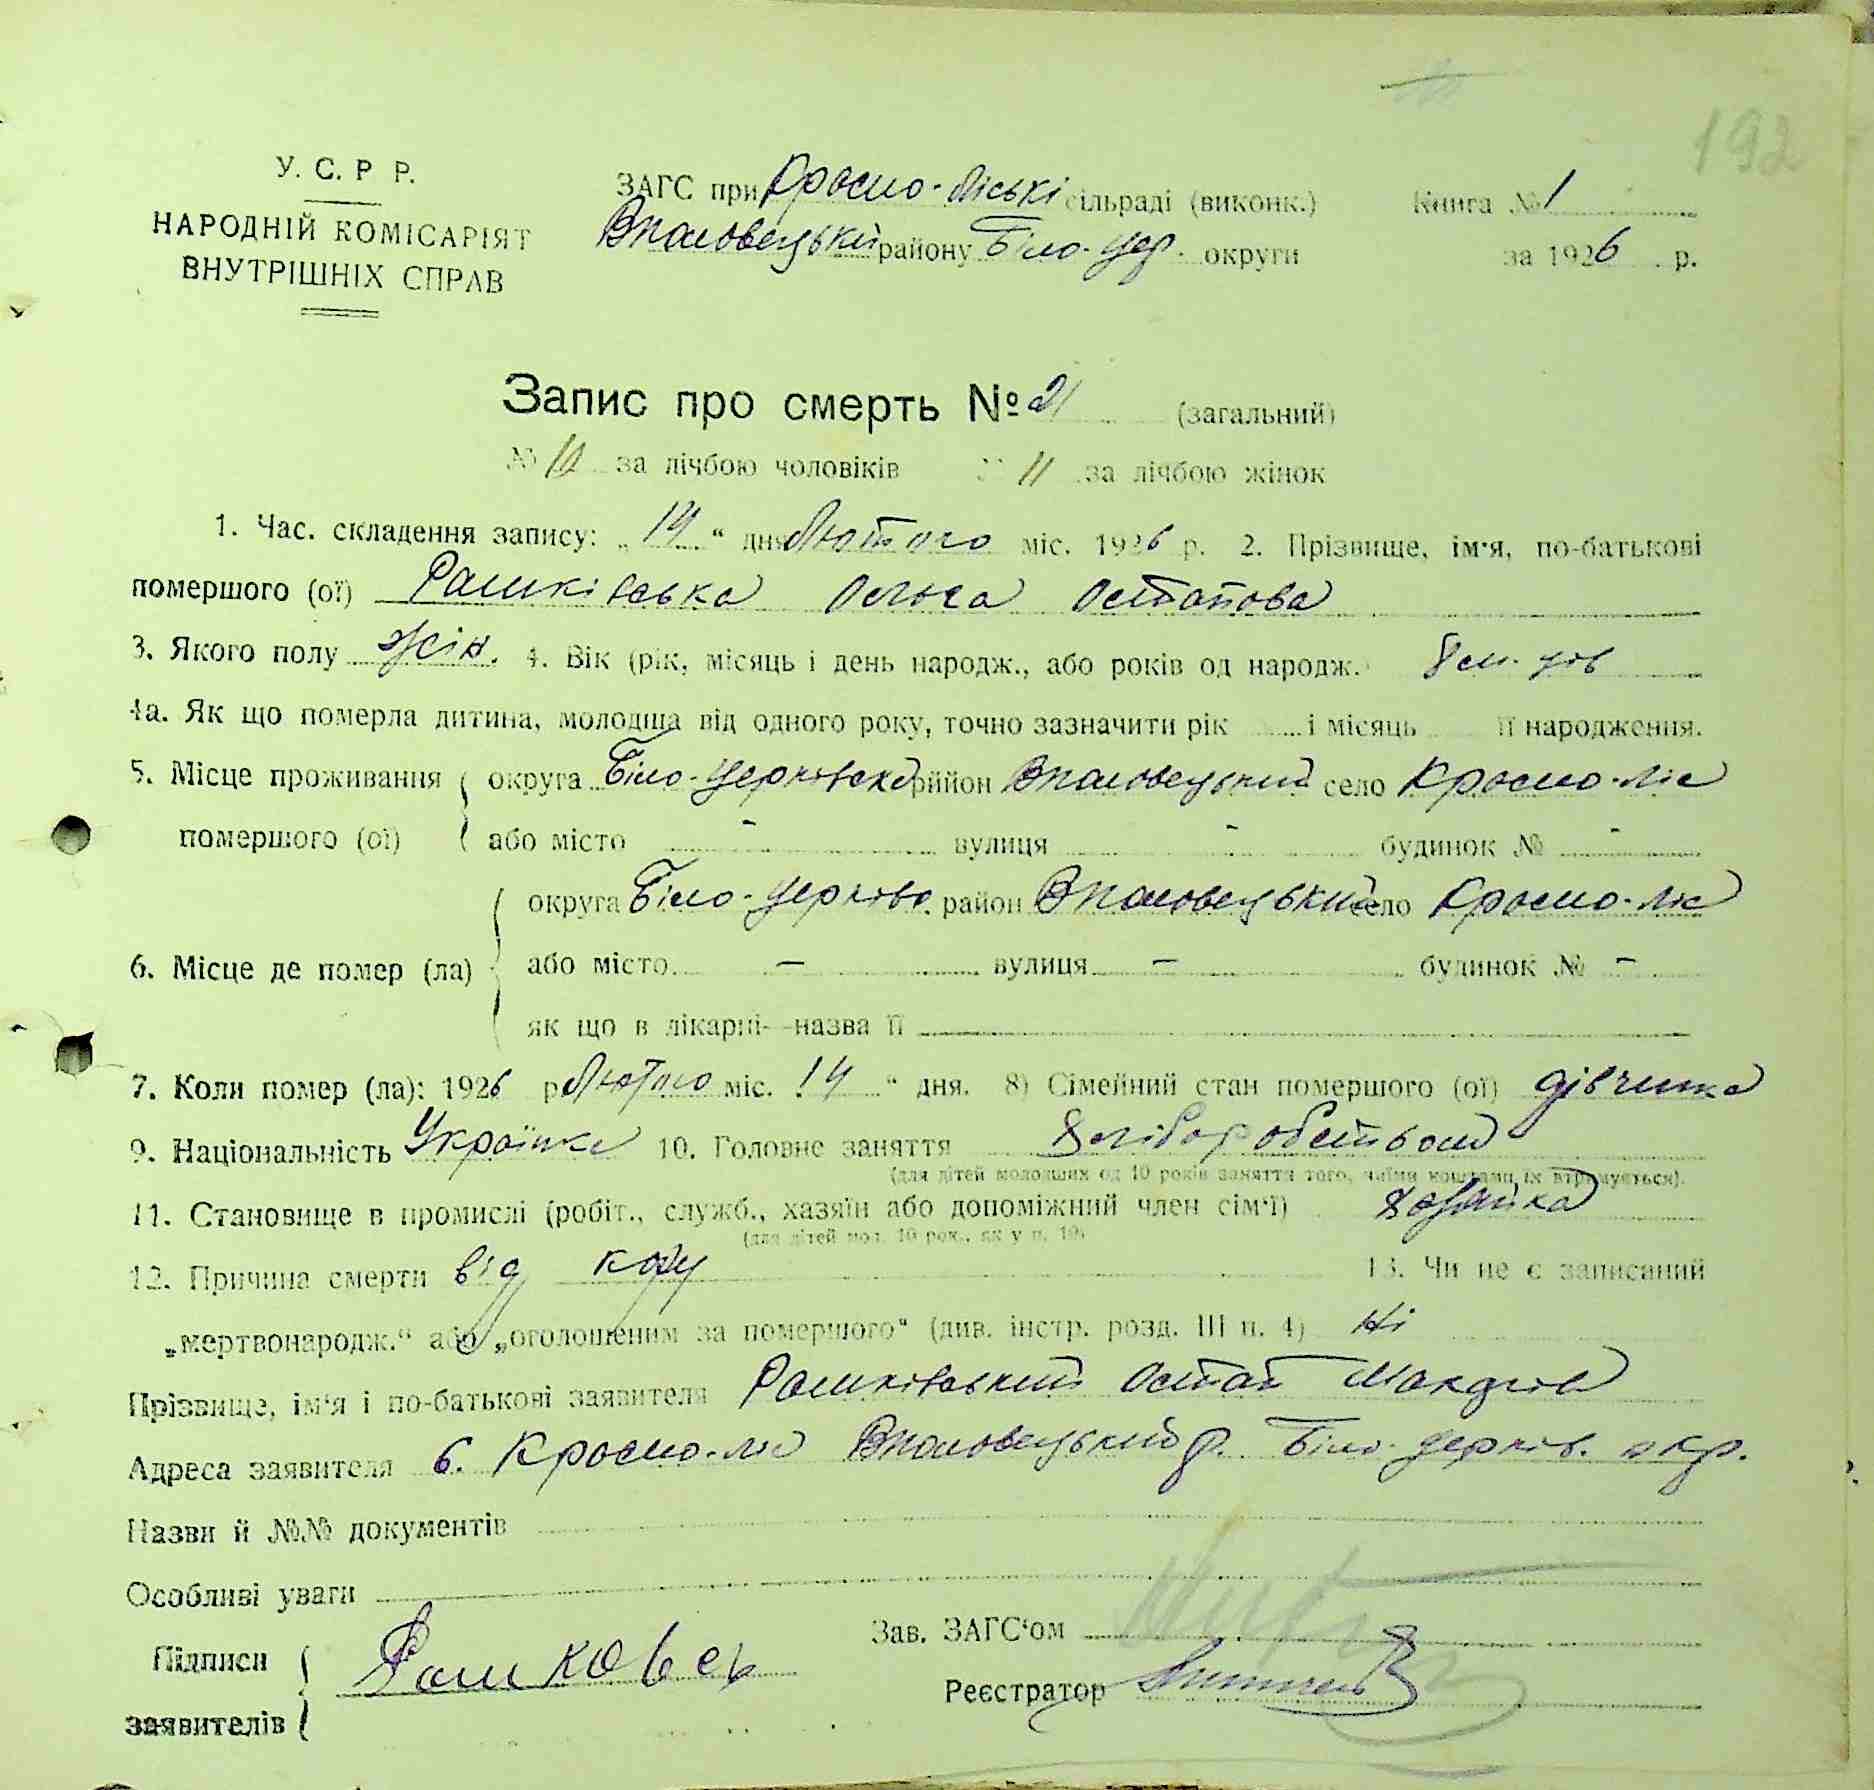 192
У. С. Р Р.
НАРОДНІЙ КОМІСАРІЯТ
ВНУТРІШНІХ СПРАВ
ЗАГС при Красно-Ліські сільраді (виконк.) Книга № 1
району Біло-Цер. округи за 1926 р.
Запис про смерть № 21 (загальний)
№ 10 за лічбою чоловіків № 11 за лічбою жінок
1. Час. складення запису: „14“ дня Лютого міс. 1926 р. 2. Прізвище, ім'я, по-батькові
помершого (ої) Рашківська Ольга Остапова
3. Якого полу жін. 4. Вік (рік, місяць і день народж., або років од народж.)
4а. Як що померла дитина, молодша від одного року, точно зазначити рік і місяць її народження.
5. Місце проживання округа Біло-Церківска район село Красно-ліс
помершого (ої) або місто - вулиця - будинок № -
округа Біло-Церківс. район село Красно-ліс
6. Місце де помер (ла) або місто - вулиця - будинок № -
як що в лікарні- -назва її
7. Коли помер (ла): 1926 р. Лютого міс. 14 “ дня. 8) Сімейний стан помершого (ої) дівчинка
9. Національність Українка 10. Головне заняття Хліборобством
(для дітей молодших од 10 років заняття того, чиїми коштами їх втримується).
11. Становище в промислі (робіт., служб., хазяїн або допоміжний член сім'ї) хазяйка
(для дітей мол. 10 рок., як у п. 10)
12. Причина смерти від кору 13. Чи не є записаний
„мертвонародж.“ або „оголошеним за помершого“ (див. інстр. розд. III п. 4) Ні
Прізвище, ім'я і по-батькові заявителя Рашківський Остап
Адреса заявителя с. Красно-ліс р. Біло-Церків. окр.
Назви й №№ документів
Особливі уваги
Зав. ЗАГС'ом
Підписи
заявителів
Реєстратор